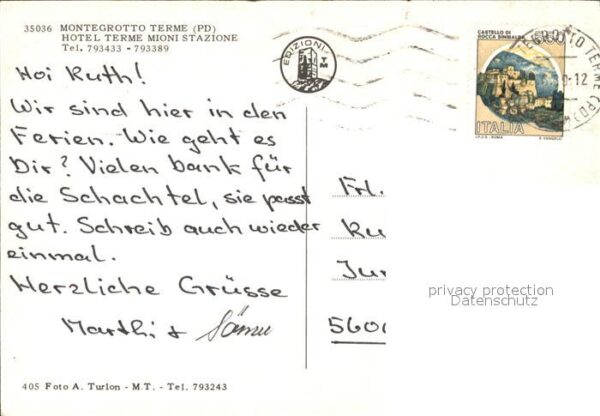 35036 MONTEGROTTO TERME (PD)
HOTEL TERME MIONI STAZIONE
Tel. 793433 - 793389
EDIZIONI TM
CASTELLO DI
ROCCA SINIBALDA
ITALIA
I.P.Z.S. - ROMA
TERME (PD)
Hoi Ruth!
Wir sind hier in den
Ferien. Wie geht es
Dir? Vielen Dank für
die Schachtel, sie passt
gut. Schreib auch wieder
einmal.
Herzliche Grüsse
Marthi +
Frl.
Ru
Jur
5600
privacy protection
Datenschutz
405 Foto A. Turlon - M.T. - Tel. 793243